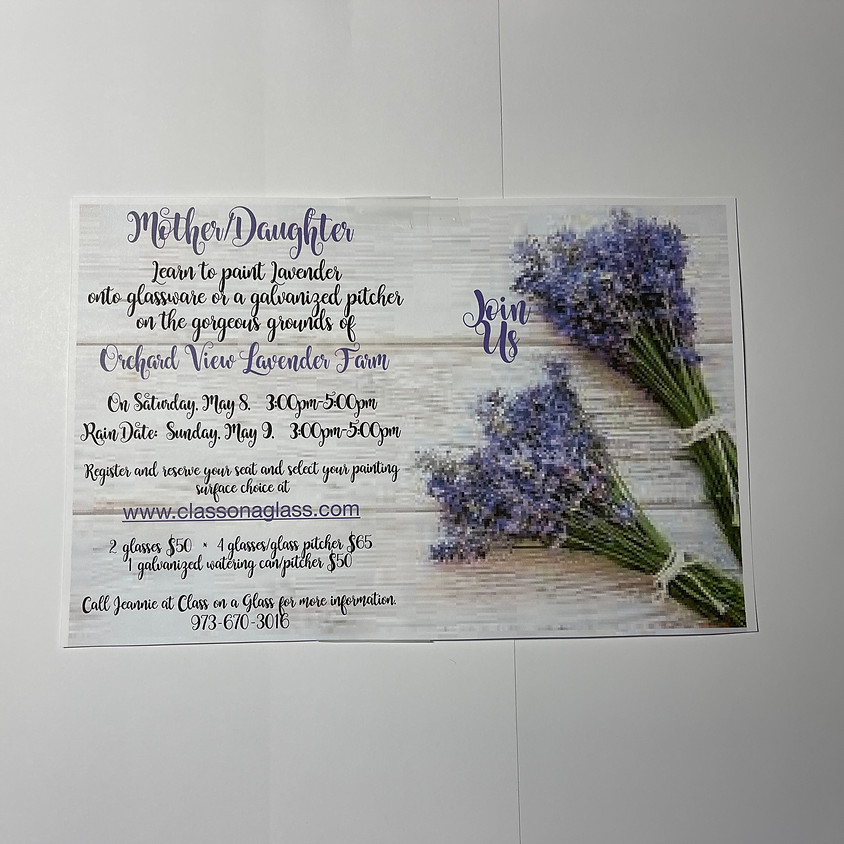 Mother/Daughter
Learn to paint Lavender
onto glassware or a galvanized pitcher
on the gorgeous grounds of
Orchard View Lavender Farm
On Saturday, May 8. 3:00pm-5:00pm
Rain Date: Sunday, May 9. 3:00pm-5:00pm
Register and reserve your seat and select your painting
surface choice at
www.classonaglass.com
2 glasses $50 * 4 glasses/glass pitcher $65
1 galvanized watering can/pitcher $50
Call Jeannie at Class on a Glass for more information.
973-670-3016
Join
Us